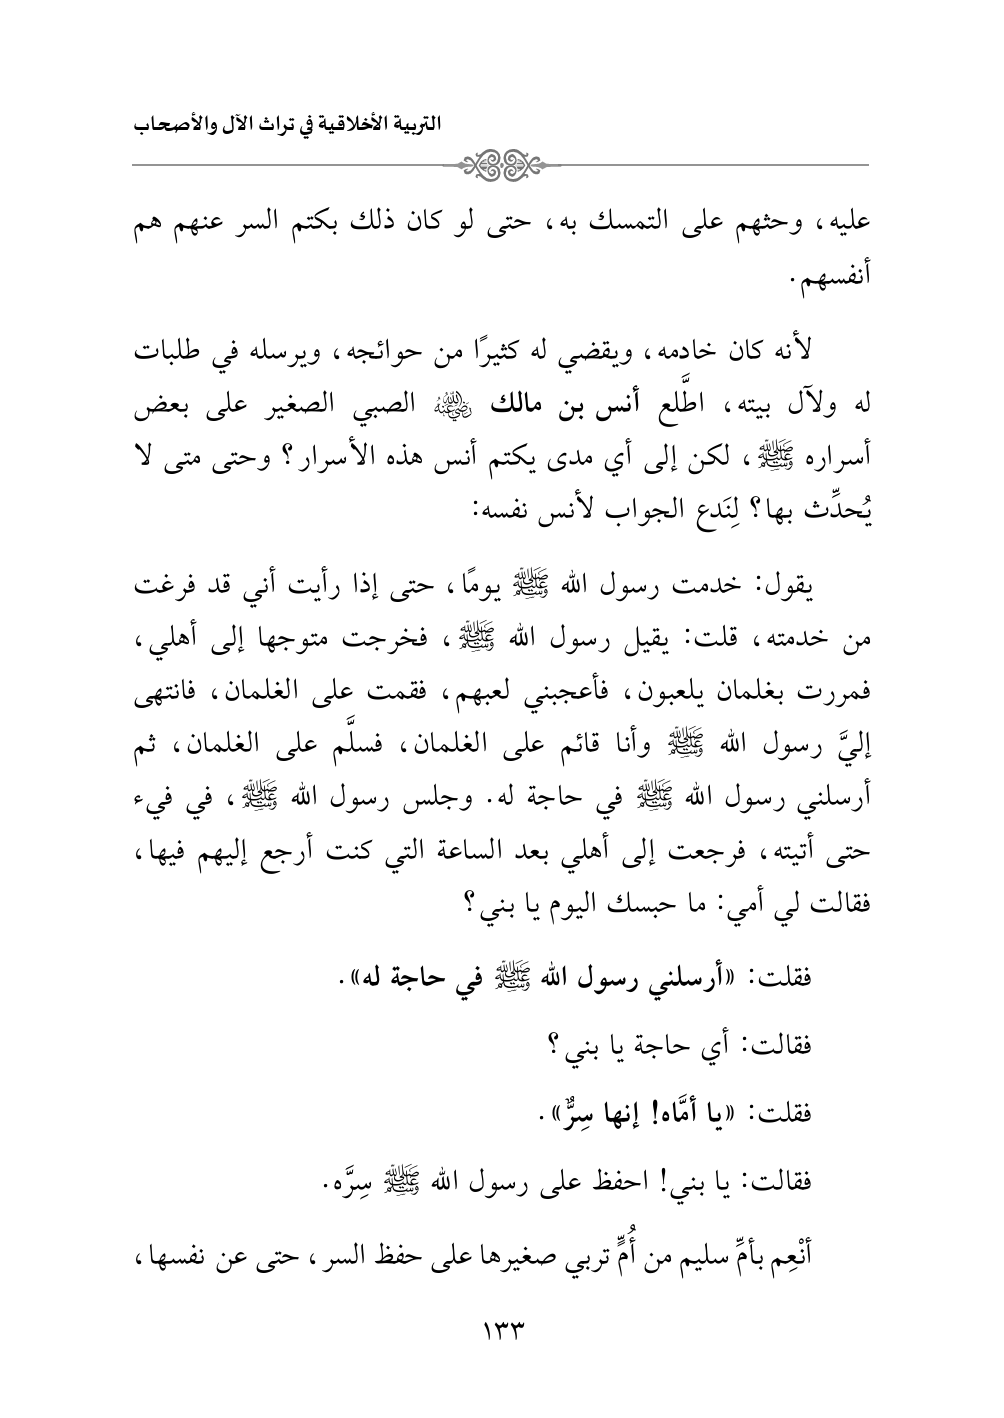 التربية الأخلاقية في تراث الآل والأصحاب
عليه، وحثهم على التمسك به، حتى لو كان ذلك بكتم السر عنهم هم
أنفسهم.
لأنه كان خادمه، ويقضي له كثيرًا من حوائجه، ويرسله في طلبات
له ولآل بيته، اطَّلع أنس بن مالك رضي الله عنه الصبي الصغير على بعض
أسراره ﷺ، لكن إلى أي مدى يكتم أنس هذه الأسرار؟ وحتى متى لا
يُحدِّث بها؟ لِنَدع الجواب لأنس نفسه:
يقول: خدمت رسول الله ﷺ يومًا، حتى إذا رأيت أني قد فرغت
من خدمته، قلت: يقيل رسول الله ﷺ، فخرجت متوجها إلى أهلي،
فمررت بغلمان يلعبون، فأعجبني لعبهم، فقمت على الغلمان، فانتهى
إليَّ رسول الله ﷺ وأنا قائم على الغلمان، فسلَّم على الغلمان، ثم
أرسلني رسول الله ﷺ في حاجة له. وجلس رسول الله ﷺ، في فيء
حتى أتيته، فرجعت إلى أهلي بعد الساعة التي كنت أرجع إليهم فيها،
فقالت لي أمي: ما حبسك اليوم يا بني؟
فقلت: «أرسلني رسول الله ﷺ في حاجة له».
فقالت: أي حاجة يا بني؟
فقلت: «يا أمَّاه! إنها سِرٌّ».
فقالت: يا بني! احفظ على رسول الله ﷺ سِرَّه.
أنْعِم بأمِّ سليم من أُمٍّ تربي صغيرها على حفظ السر، حتى عن نفسها،
١٣٣